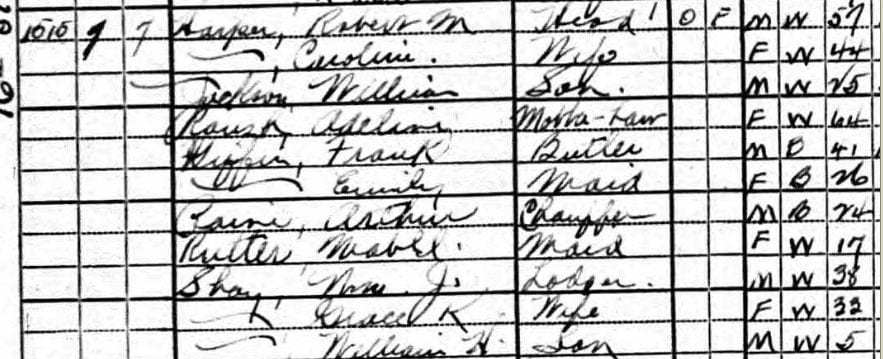 1515 9 7 Harper, Robert M Head O F M W 57
—, Caroline. Wife F W 44
Jackson, William Son. M W 25
Adeline Mother-Law F W 64
Frank Butler M B 41
— Emily Maid F B 26
Arthur Chauffer M B 24
Rutter Mabel. Maid F W 17
Shay, Wm. J. Lodger. M W 38
— Grace K Wife F W 32
— William H. Son M W 5